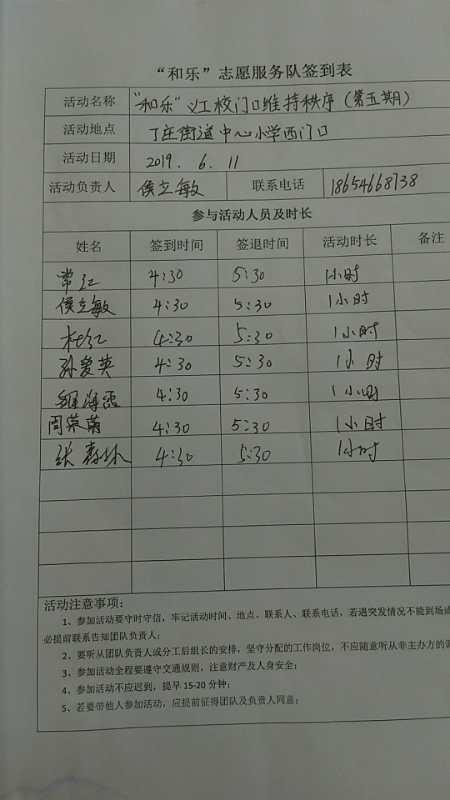 “和乐”志愿服务队签到表
活动名称 “和乐”义工校门口维持秩序（第五期）
活动地点 丁庄街道中心小学西门口
活动日期 2019. 6. 11
活动负责人 侯立敏 联系电话 18654668738
参与活动人员及时长
姓名 签到时间 签退时间 活动时长 备注
常红 4:30 5:30 1小时
侯立敏 4:30 5:30 1小时
杜红 4:30 5:30 1小时
孙爱英 4:30 5:30 1小时
4:30 5:30 1小时
周荣菊 4:30 5:30 1小时
张春林 4:30 5:30 1小时
活动注意事项：
1、参加活动要守时守信，牢记活动时间、地点、联系人、联系电话，若遇突发情况不能到场或
必提前联系告知团队负责人；
2、要听从团队负责人或分工后组长的安排，坚守分配的工作岗位，不应随意听从非主办方的
3、参加活动全程要遵守交通规则，注意财产及人身安全；
4、参加活动不应迟到，提早 15-20 分钟；
5、若要带他人参加活动，应提前征得团队及负责人同意；